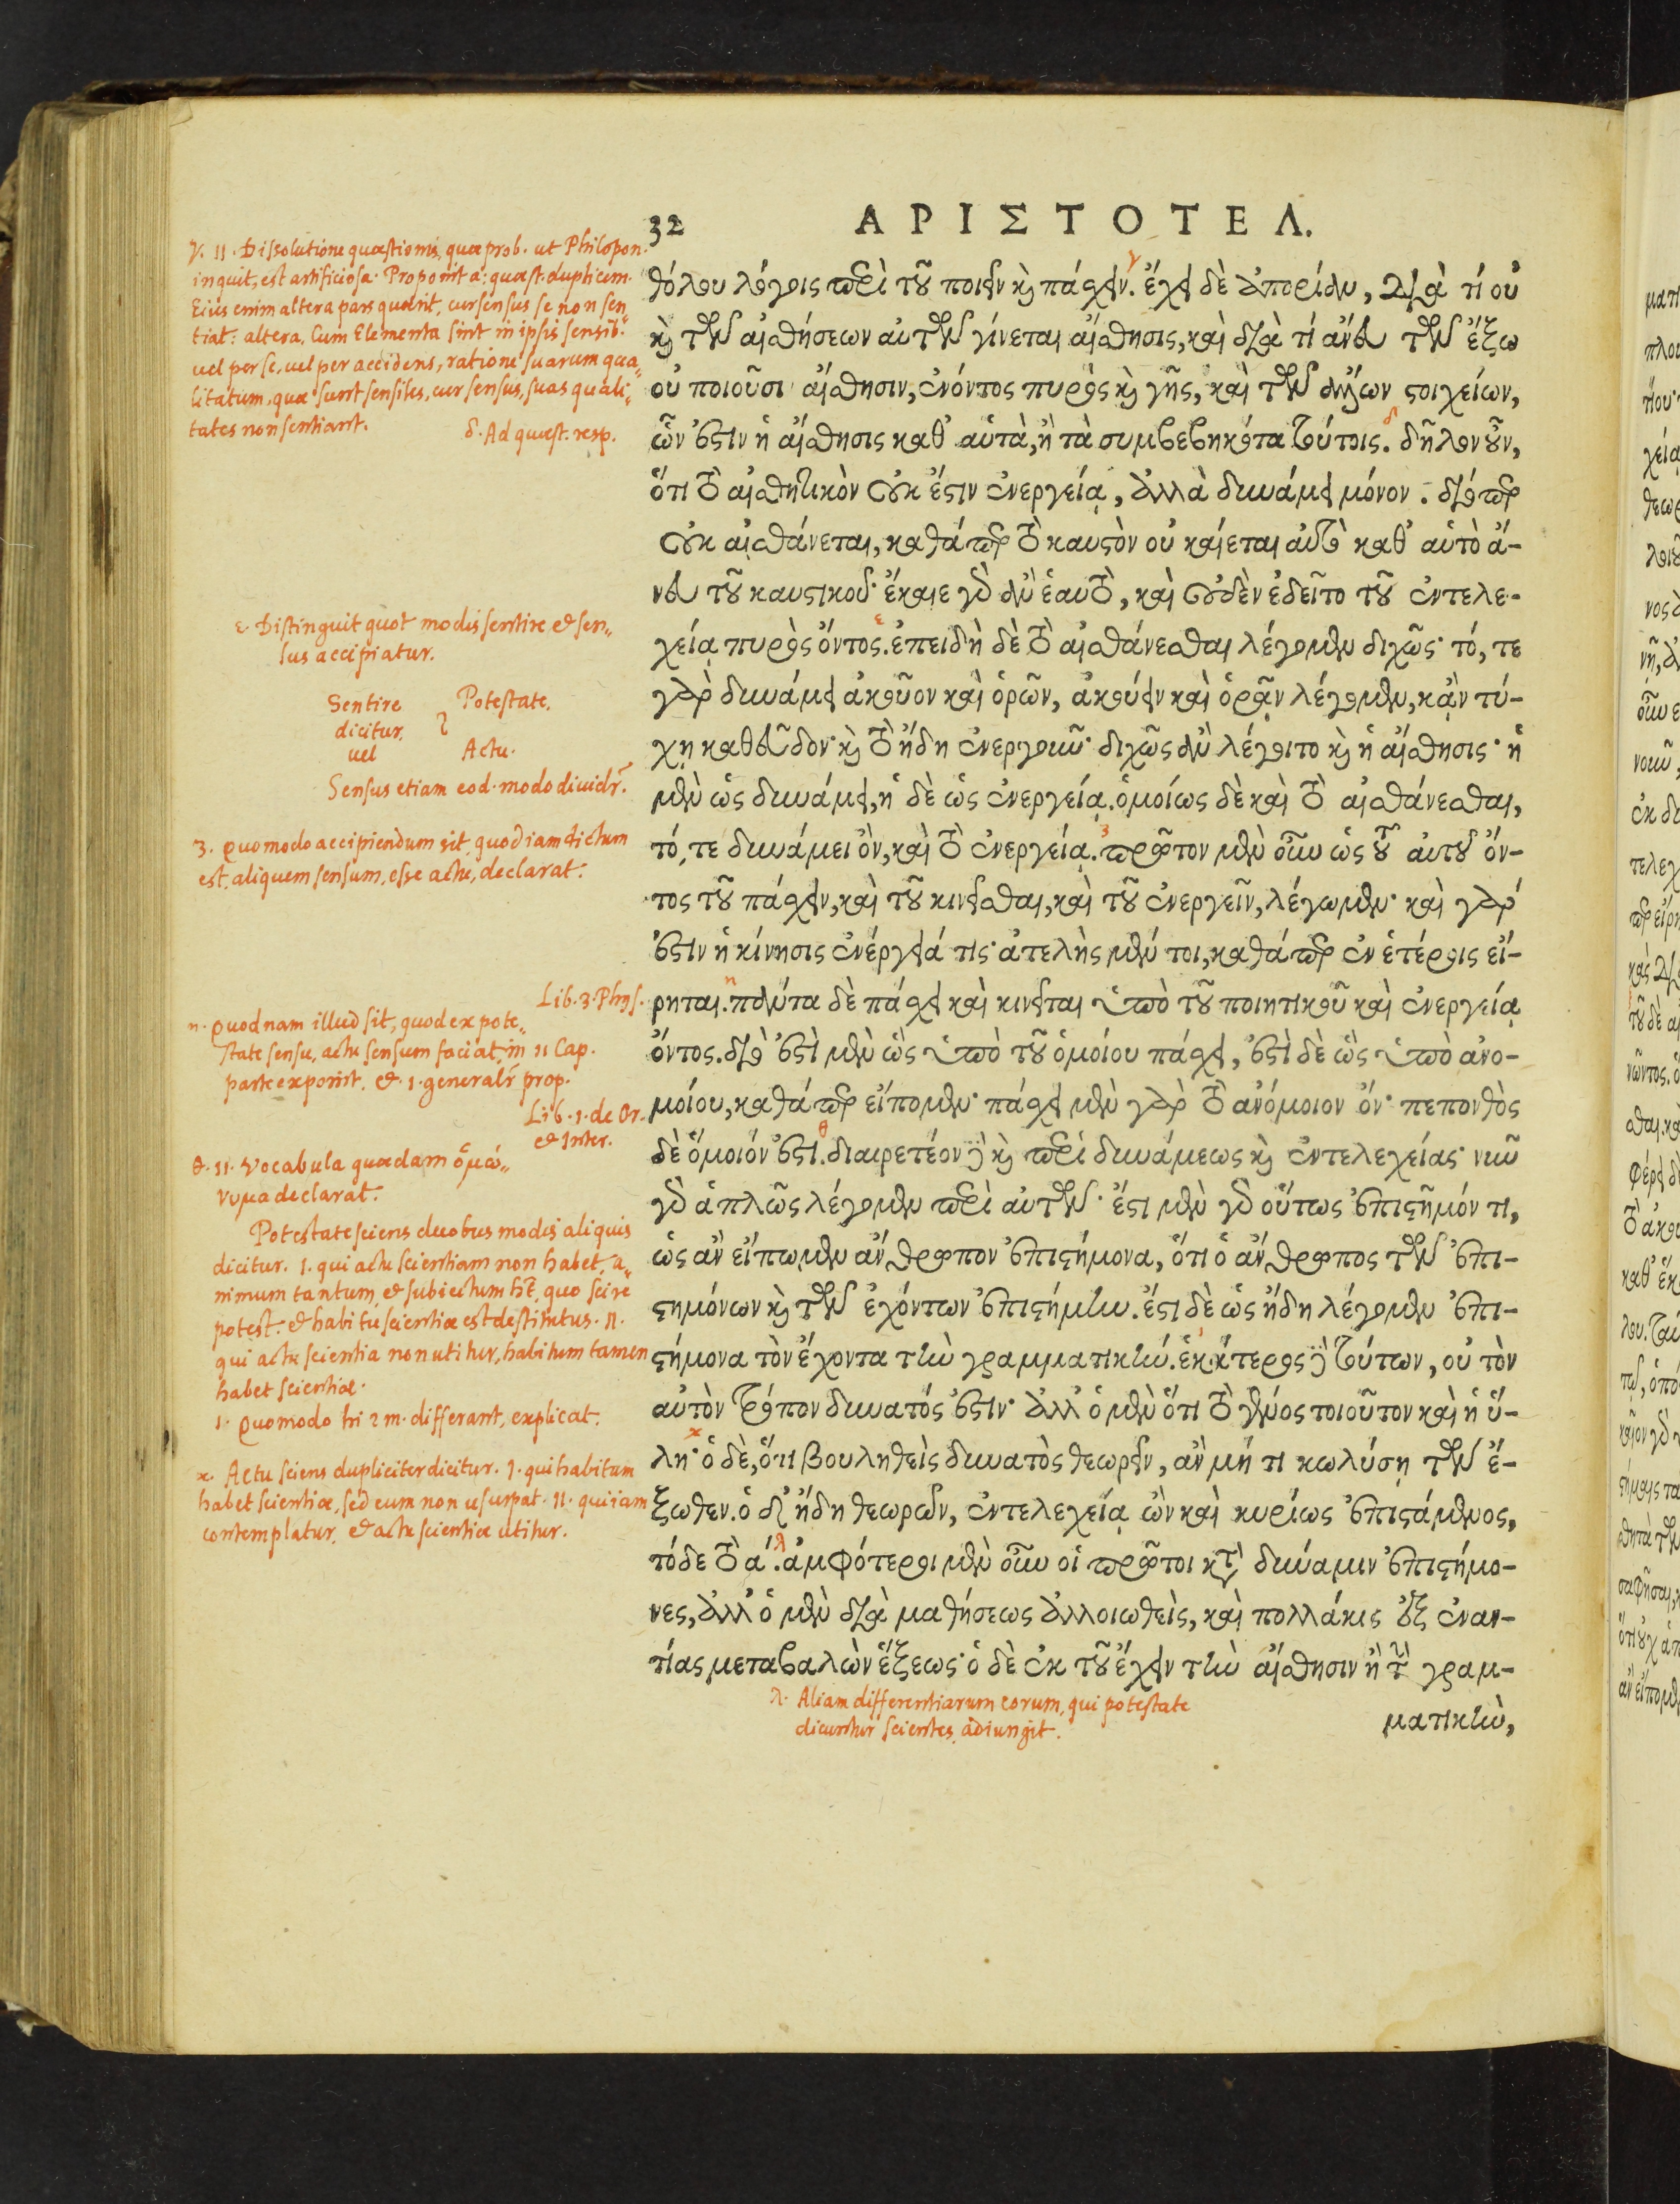 32
ΑΡΙΣΤΟΤΕΛ.
θόλου λόγοις περὶ τοῦ ποιεῖν καὶ πάσχειν. ἔχει δὲ ἀπορίαν, διὰ τί οὐ
καὶ τῶν αἰσθήσεων αὐτῶν γίνεται αἴσθησις, καὶ διὰ τί ἄνευ τῶν ἔξω
οὐ ποιοῦσι αἴσθησιν, ἐνόντος πυρὸς καὶ γῆς, καὶ τῶν ἄλλων στοιχείων,
ὧν ἐστιν ἡ αἴσθησις καθ' αὑτὰ, ἢ τὰ συμβεβηκότα τούτοις. δῆλον οὖν,
ὅτι τὸ αἰσθητικὸν οὐκ ἔστιν ἐνεργείᾳ, ἀλλὰ δυνάμει μόνον. διόπερ
οὐκ αἰσθάνεται, καθάπερ τὸ καυστὸν οὐ καίεται αὐτὸ καθ' αὑτὸ ἄ-
νευ τοῦ καυστικοῦ· ἔκαιε γὰρ ἂν ἑαυτὸ, καὶ οὐδὲν ἐδεῖτο τοῦ ἐντελε-
χείᾳ πυρὸς ὄντος. ἐπειδὴ δὲ τὸ αἰσθάνεσθαι λέγομεν διχῶς· τό, τε
γὰρ δυνάμει ἀκοῦον καὶ ὁρῶν, ἀκούειν καὶ ὁρᾷν λέγομεν, κἂν τύ-
χῃ καθεῦδον· καὶ τὸ ἤδη ἐνεργοῦν· διχῶς ἂν λέγοιτο καὶ ἡ αἴσθησις· ἡ
μὲν ὡς δυνάμει, ἡ δὲ ὡς ἐνεργείᾳ. ὁμοίως δὲ καὶ τὸ αἰσθάνεσθαι,
τό, τε δυνάμει ὂν, καὶ τὸ ἐνεργείᾳ. πρῶτον μὲν οὖν ὡς τοῦ αὐτοῦ ὄν-
τος τοῦ πάσχειν, καὶ τοῦ κινεῖσθαι, καὶ τοῦ ἐνεργεῖν, λέγωμεν· καὶ γάρ
ἐστιν ἡ κίνησις ἐνέργειά τις· ἀτελὴς μέν τοι, καθάπερ ἐν ἑτέροις εἴ-
ρηται. πάντα δὲ πάσχει καὶ κινεῖται ὑπὸ τοῦ ποιητικοῦ καὶ ἐνεργείᾳ
ὄντος. διὸ ἐστὶ μὲν ὡς ὑπὸ τοῦ ὁμοίου πάσχει, ἐστὶ δὲ ὡς ὑπὸ ἀνο-
μοίου, καθάπερ εἴπομεν· πάσχει μὲν γὰρ τὸ ἀνόμοιον ὄν· πεπονθὸς
δὲ ὅμοιόν ἐστι. διαιρετέον δὲ καὶ περὶ δυνάμεως καὶ ἐντελεχείας· νῦν
γὰρ ἁπλῶς λέγομεν περὶ αὐτῶν· ἔστι μὲν γὰρ οὕτως ἐπιστῆμόν τι,
ὡς ἂν εἴπωμεν ἄνθρωπον ἐπιστήμονα, ὅτι ὁ ἄνθρωπος τῶν ἐπι-
στημόνων καὶ τῶν ἐχόντων ἐπιστήμην. ἔστι δὲ ὡς ἤδη λέγομεν ἐπι-
στήμονα τὸν ἔχοντα τὴν γραμματικήν. ἑκάτερος δὲ τούτων, οὐ τὸν
αὐτὸν τρόπον δυνατός ἐστιν· ἀλλ' ὁ μὲν ὅτι τὸ γένος τοιοῦτον καὶ ἡ ὕ-
λη· ὁ δὲ, ὅτι βουληθεὶς δυνατὸς θεωρεῖν, ἂν μή τι κωλύσῃ τῶν ἔ-
ξωθεν. ὁ δ' ἤδη θεωρῶν, ἐντελεχείᾳ ὢν καὶ κυρίως ἐπιστάμενος,
τόδε τὸ ἀ. ἀμφότεροι μὲν οὖν οἱ πρῶτοι κατὰ δύναμιν ἐπιστήμο-
νες, ἀλλ' ὁ μὲν διὰ μαθήσεως ἀλλοιωθεὶς, καὶ πολλάκις ἐξ ἐναν-
τίας μεταβαλὼν ἕξεως· ὁ δὲ ἐκ τοῦ ἔχειν τὴν αἴσθησιν ἢ τὴν γραμ-
ματικὴν,
γ. II. Dissolutione quæstionis, quæ prob. ut Philopon.
inquit, est artificiosa. Proponit a: quæst. duplicem.
Eius enim altera pars quærit, cur sensus se non sen„
tiat: altera, Cum Elementa sint in ipsis sensib.
uel per se, uel per accidens, ratione suarum qua„
litatum, quæ sunt sensiles, cur sensus, suas quali„
tates non sentiant.
δ. Ad quæst. resp.
ε. Distinguit quot modis sentire et sen„
sus accipiatur.
Sentire
dicitur,
uel
Potestate.
Actu.
Sensus etiam eod. modo dividr̃.
3. Quomodo accipiendum sit, quod iam dictum
est, aliquem sensum, esse actu, declarat.
Lib. 3. Phys.
η. Quodnam illud sit, quod ex pote„
state sensu, actu sensum faciat, in II Cap.
parte exponit. et. 1. generalr̃ prop.
Lib. 1. de Or.
et Inter.
θ. II. Vocabula quædam ὁμώ„
νυμα declarat.
Potestate sciens duobus modis aliquis
dicitur. I. qui actu scientiam non habet, a„
nimum tantum, et subiectum hēt, quo scire
potest. et habitu scientiæ est destitutus. II.
qui actu scientia non utitur, habitum tamen
habet scientiæ.
ι. Quomodo hi 2 m. differant, explicat.
κ. Actu sciens dupliciter dicitur. I. qui habitum
habet scientiæ, sed eum non usurpat. II. qui iam
contemplatur, et actu scientiæ utitur.
λ. Aliam differentiarum eorum, qui potestate
dicuntur scientes, adiungit.